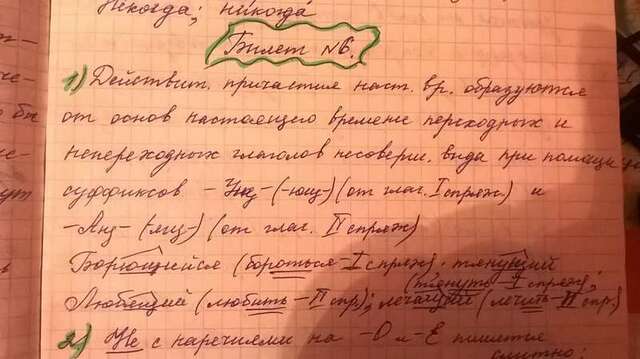 Некогда; никогда
Билет №6.
1) Действит. причастия наст. вр. образуются
от основ настоящего времени переходных и
непереходных глаголов несоверш. вида при помощи
суффиксов -Ущ-(-ющ-)(от глаг. I спряж.) и
-Ащ-(-ящ-) (от глаг. II спряж)
Борющийся (бороться-I спряж); тянущий
(тянуть-I спряж);
Любящий (любить-II спр.); лечащий (лечить-II спр.)
2) Не с наречиями на -О и -Е пишется
слитно: